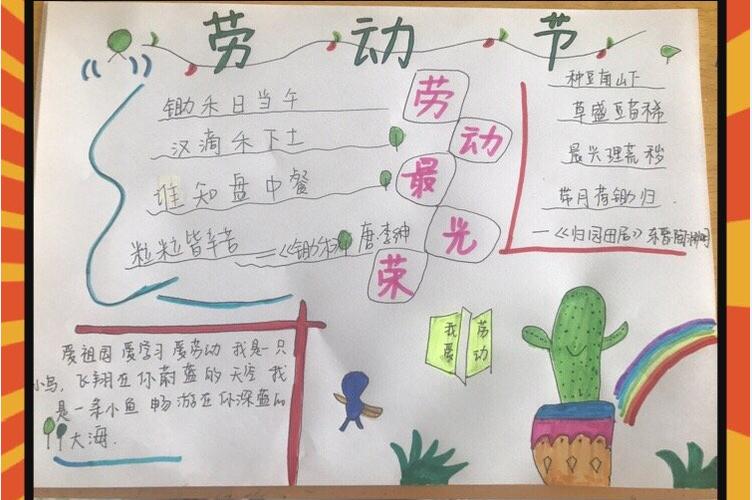 劳动节
锄禾日当午
汉滴禾下土
谁知盘中餐
粒粒皆辛苦
——《锄禾》唐·李绅
劳动最光荣
种豆南山下
草盛豆苗稀
晨兴理荒秽
带月荷锄归
——《归园田居》东晋陶渊明
我爱劳动
爱祖国 爱学习 爱劳动 我是一只
小鸟,飞翔在你蔚蓝的天空 我
是一条小鱼 畅游在你深蓝的
大海.